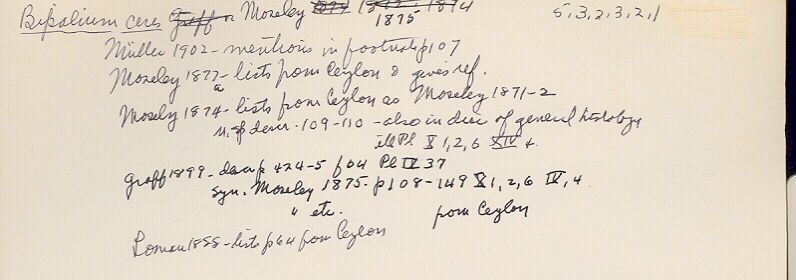 Bipalium ceres Graff or Moseley 1874 1875 5,3,2,3,2,1
Müller 1902 - mentions in footnote p107
Moseley 1877a - lists from Ceylon & gives ref.
Mosely 1874 - lists from Ceylon as Moseley 1871-2
descr. 109-110 - also in disc of general histology
ill Pl X 1,2,6 XIV 4
Graff 1899 - descr p 424-5 f 64 Pl IV 37
Syn. Moseley 1875 - p108-149 X 1,2,6 IV, 4
" etc. from Ceylon
Loman 1888 - lists p64 from Ceylon